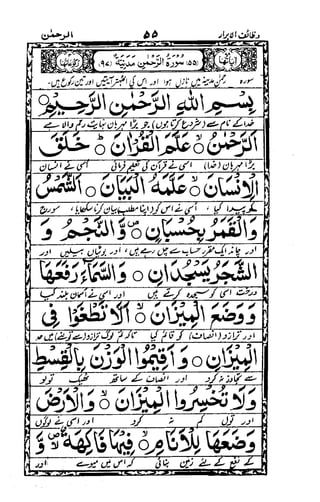 وظائف الابرار ۵۵ الرحمٰن
(۵۵) سُوْرَةُ الرَّحْمٰنِ مَدَنِيَّةٌ (۹۷)
سورہ رحمٰن مدینہ میں نازل ہوا اور اس کی اٹھہتر آیتیں اور تین رکوع ہیں
بِسْمِ اللهِ الرَّحْمٰنِ الرَّحِيْمِ
خدا کے نام سے (شروع کرتا ہوں) جو بڑا مہربان نہایت رحم والا ہے
الرَّحْمٰنُ ۙ عَلَّمَ الْقُرْاٰنَ ؕ خَلَقَ
بڑا مہربان (خدا) اسی نے قرآن کی تعلیم فرمائی اسی نے انسان
الْاِنْسَانَ ۙ عَلَّمَهُ الْبَيَانَ ۟ اَلشَّمْسُ
کو پیدا کیا اسی نے اس کو (اپنا مطلب) بیان کرنا سکھایا، سورج
وَالْقَمَرُ بِحُسْبَانٍ ۪ وَّ النَّجْمُ وَ
اور چاند ایک مقرر حساب سے چل رہے ہیں، اور بوٹیاں بیلیں اور
الشَّجَرُ يَسْجُدَانِ ۟ وَ السَّمَآءَ رَفَعَهَا
درخت اسی کو سجدہ کرتے ہیں اور اسی نے آسمان بلند کیا
وَ وَضَعَ الْمِيْزَانَ ۙ اَلَّا تَطْغَوْا فِي
اور ترازو (انصاف) کو قائم کیا تاکہ تم لوگ ترازو (سے تولنے) میں حد
الْمِيْزَانِ ۟ وَ اَقِيْمُوا الْوَزْنَ بِالْقِسْطِ
سے تجاوز نہ کرو اور انصاف کے ساتھ ٹھیک تولو
وَلَا تُخْسِرُوا الْمِيْزَانَ ۟ وَالْاَرْضَ
اور تول کم نہ کرو اور اسی نے لوگوں
وَضَعَهَا لِلْاَنَامِ ۙ فِيْهَا فَاكِهَةٌ ۪ۙ وَّ
کے نفع کے لئے زمین بنائی کہ اس میں میوے اور